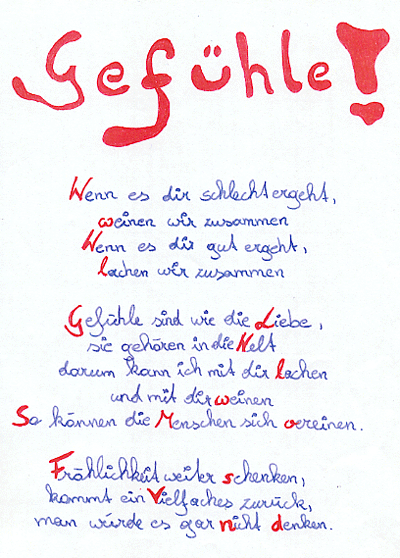 Gefühle!
Wenn es dir schlecht ergeht,
weinen wir zusammen
Wenn es dir gut ergeht,
lachen wir zusammen
Gefühle sind wie die Liebe,
sie gehören in die Welt
darum kann ich mit dir lachen
und mit dir weinen
So können die Menschen sich vereinen.
Fröhlichkeit weiter schenken,
kommt ein Vielfaches zurück,
man würde es gar nicht denken.